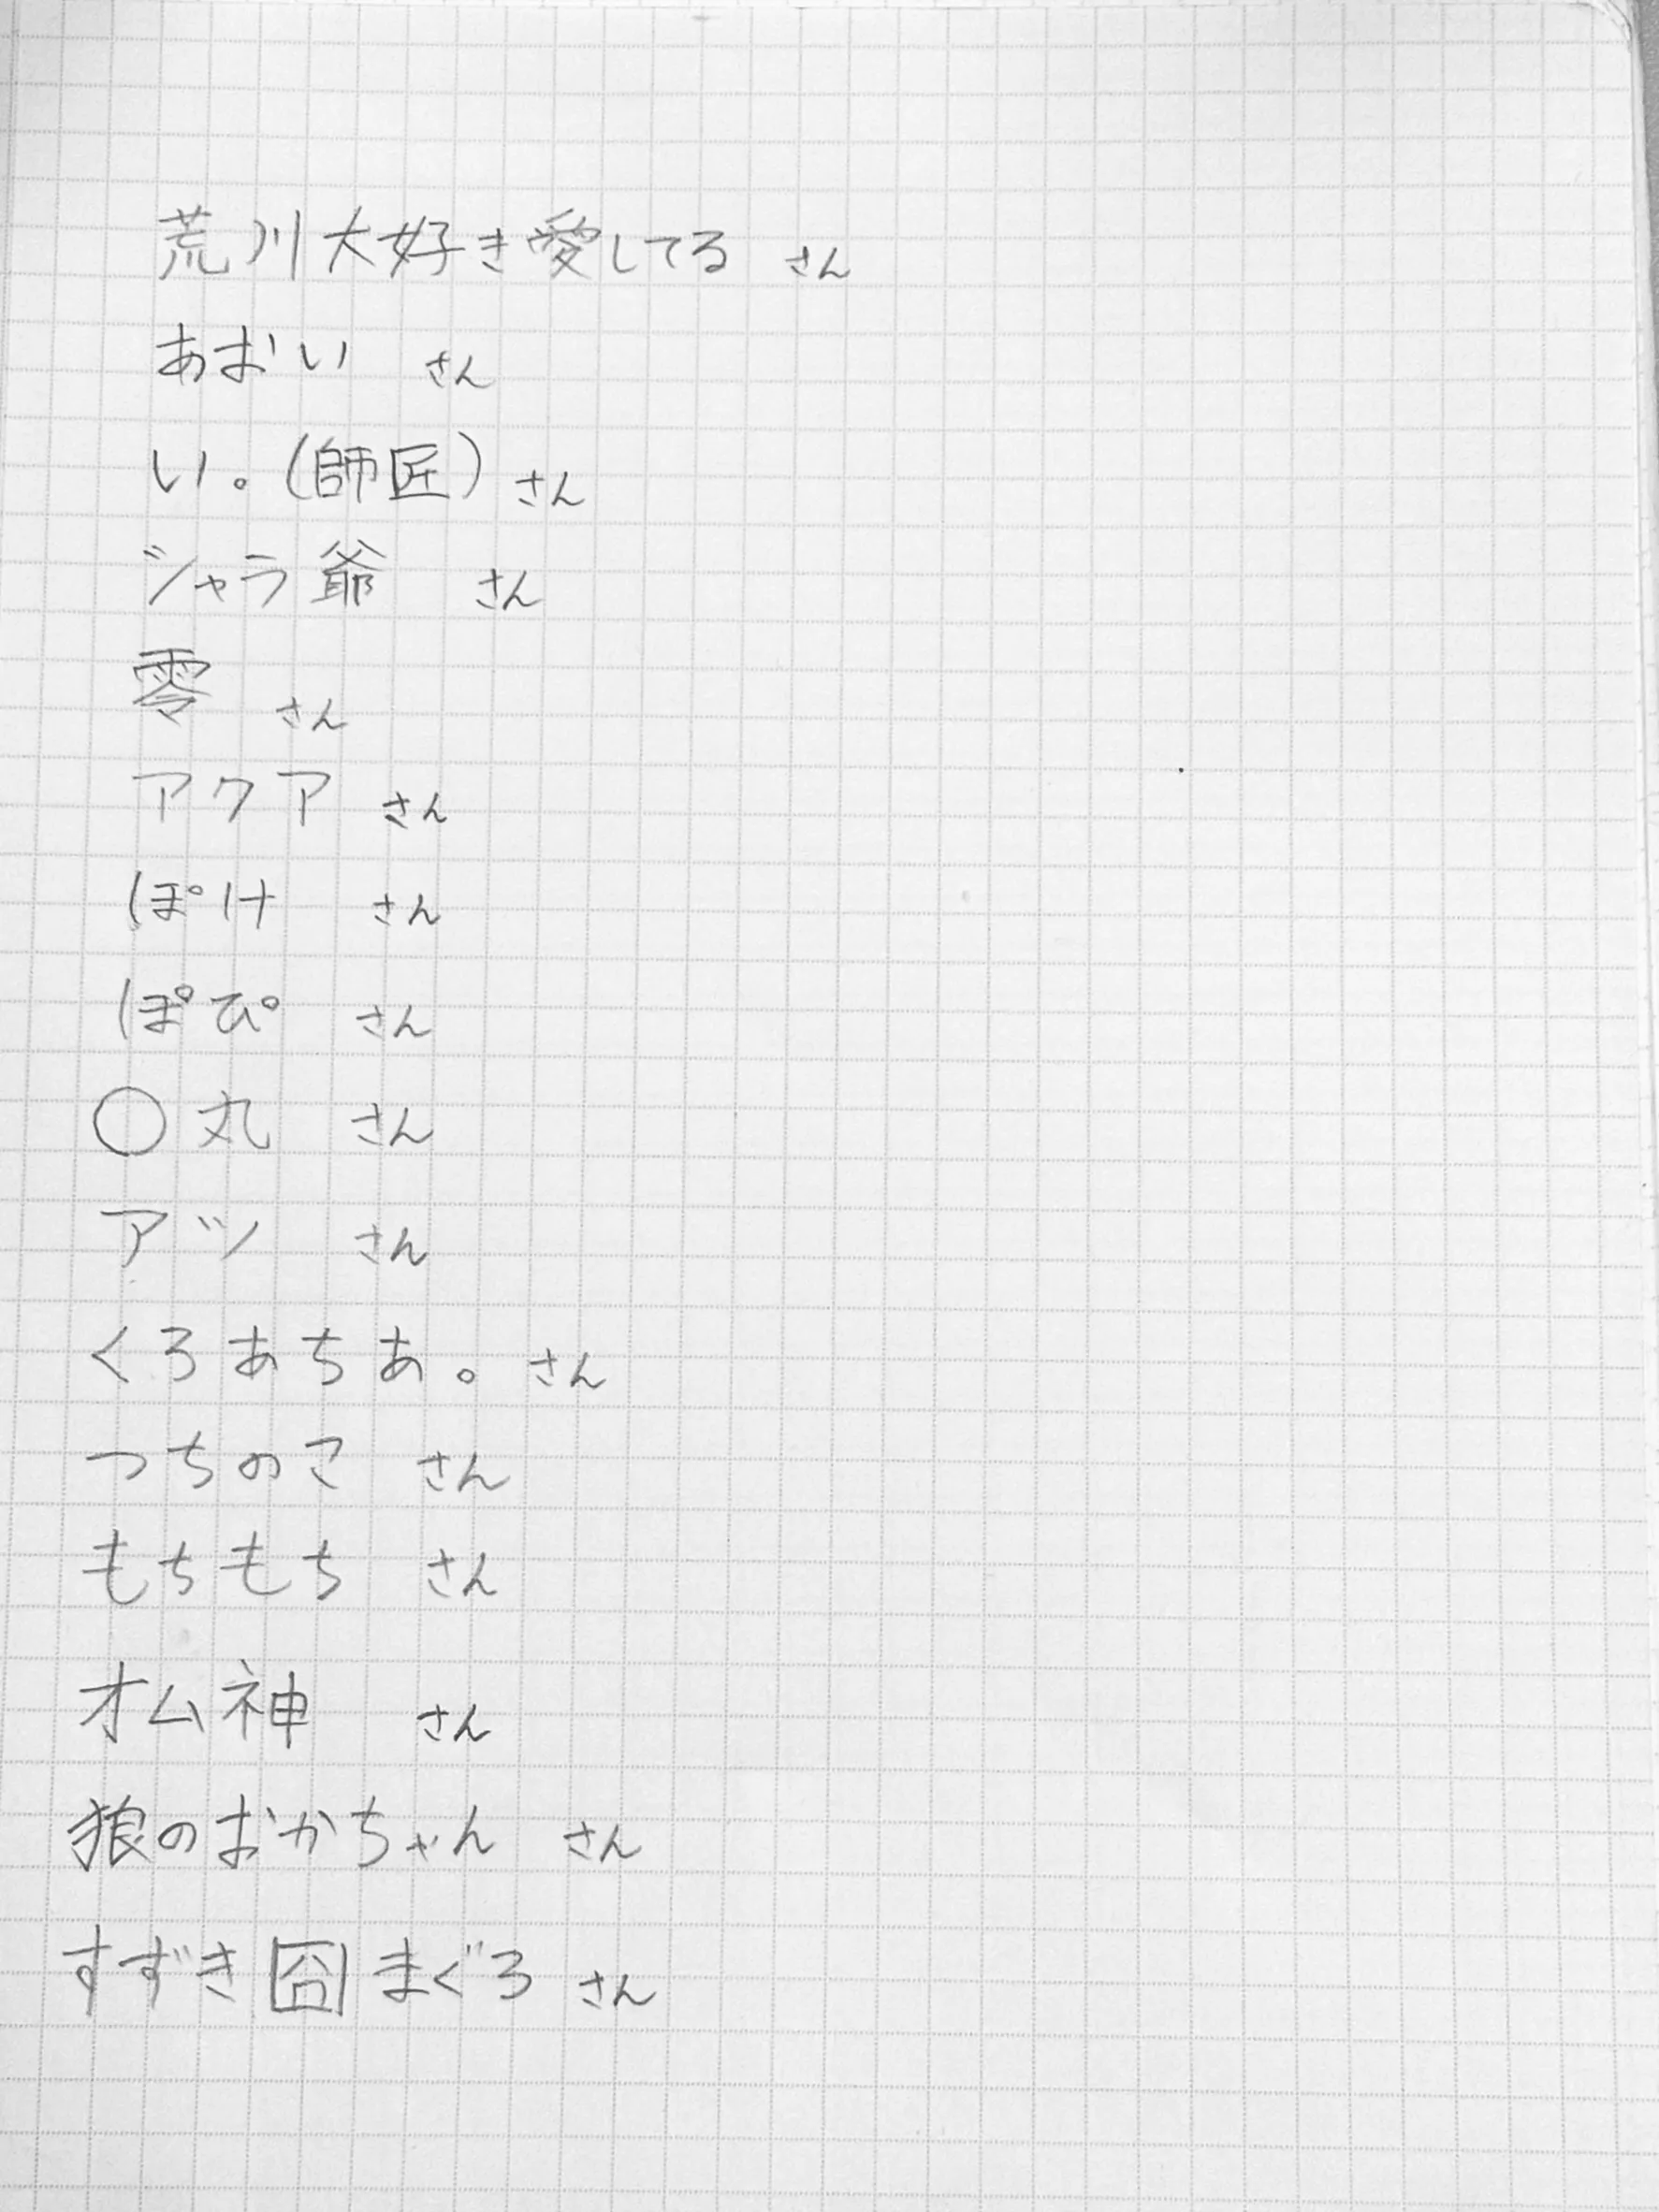 荒川大好き愛してる さん
あおい さん
い。(師匠) さん
シャラ爺 さん
零 さん
アクア さん
ぽけ さん
ぽぴ さん
○丸 さん
アツ さん
くろあちあ。さん
つちのこ さん
もちもち さん
オム神 さん
狼のおかちゃん さん
すずき囧まぐろ さん